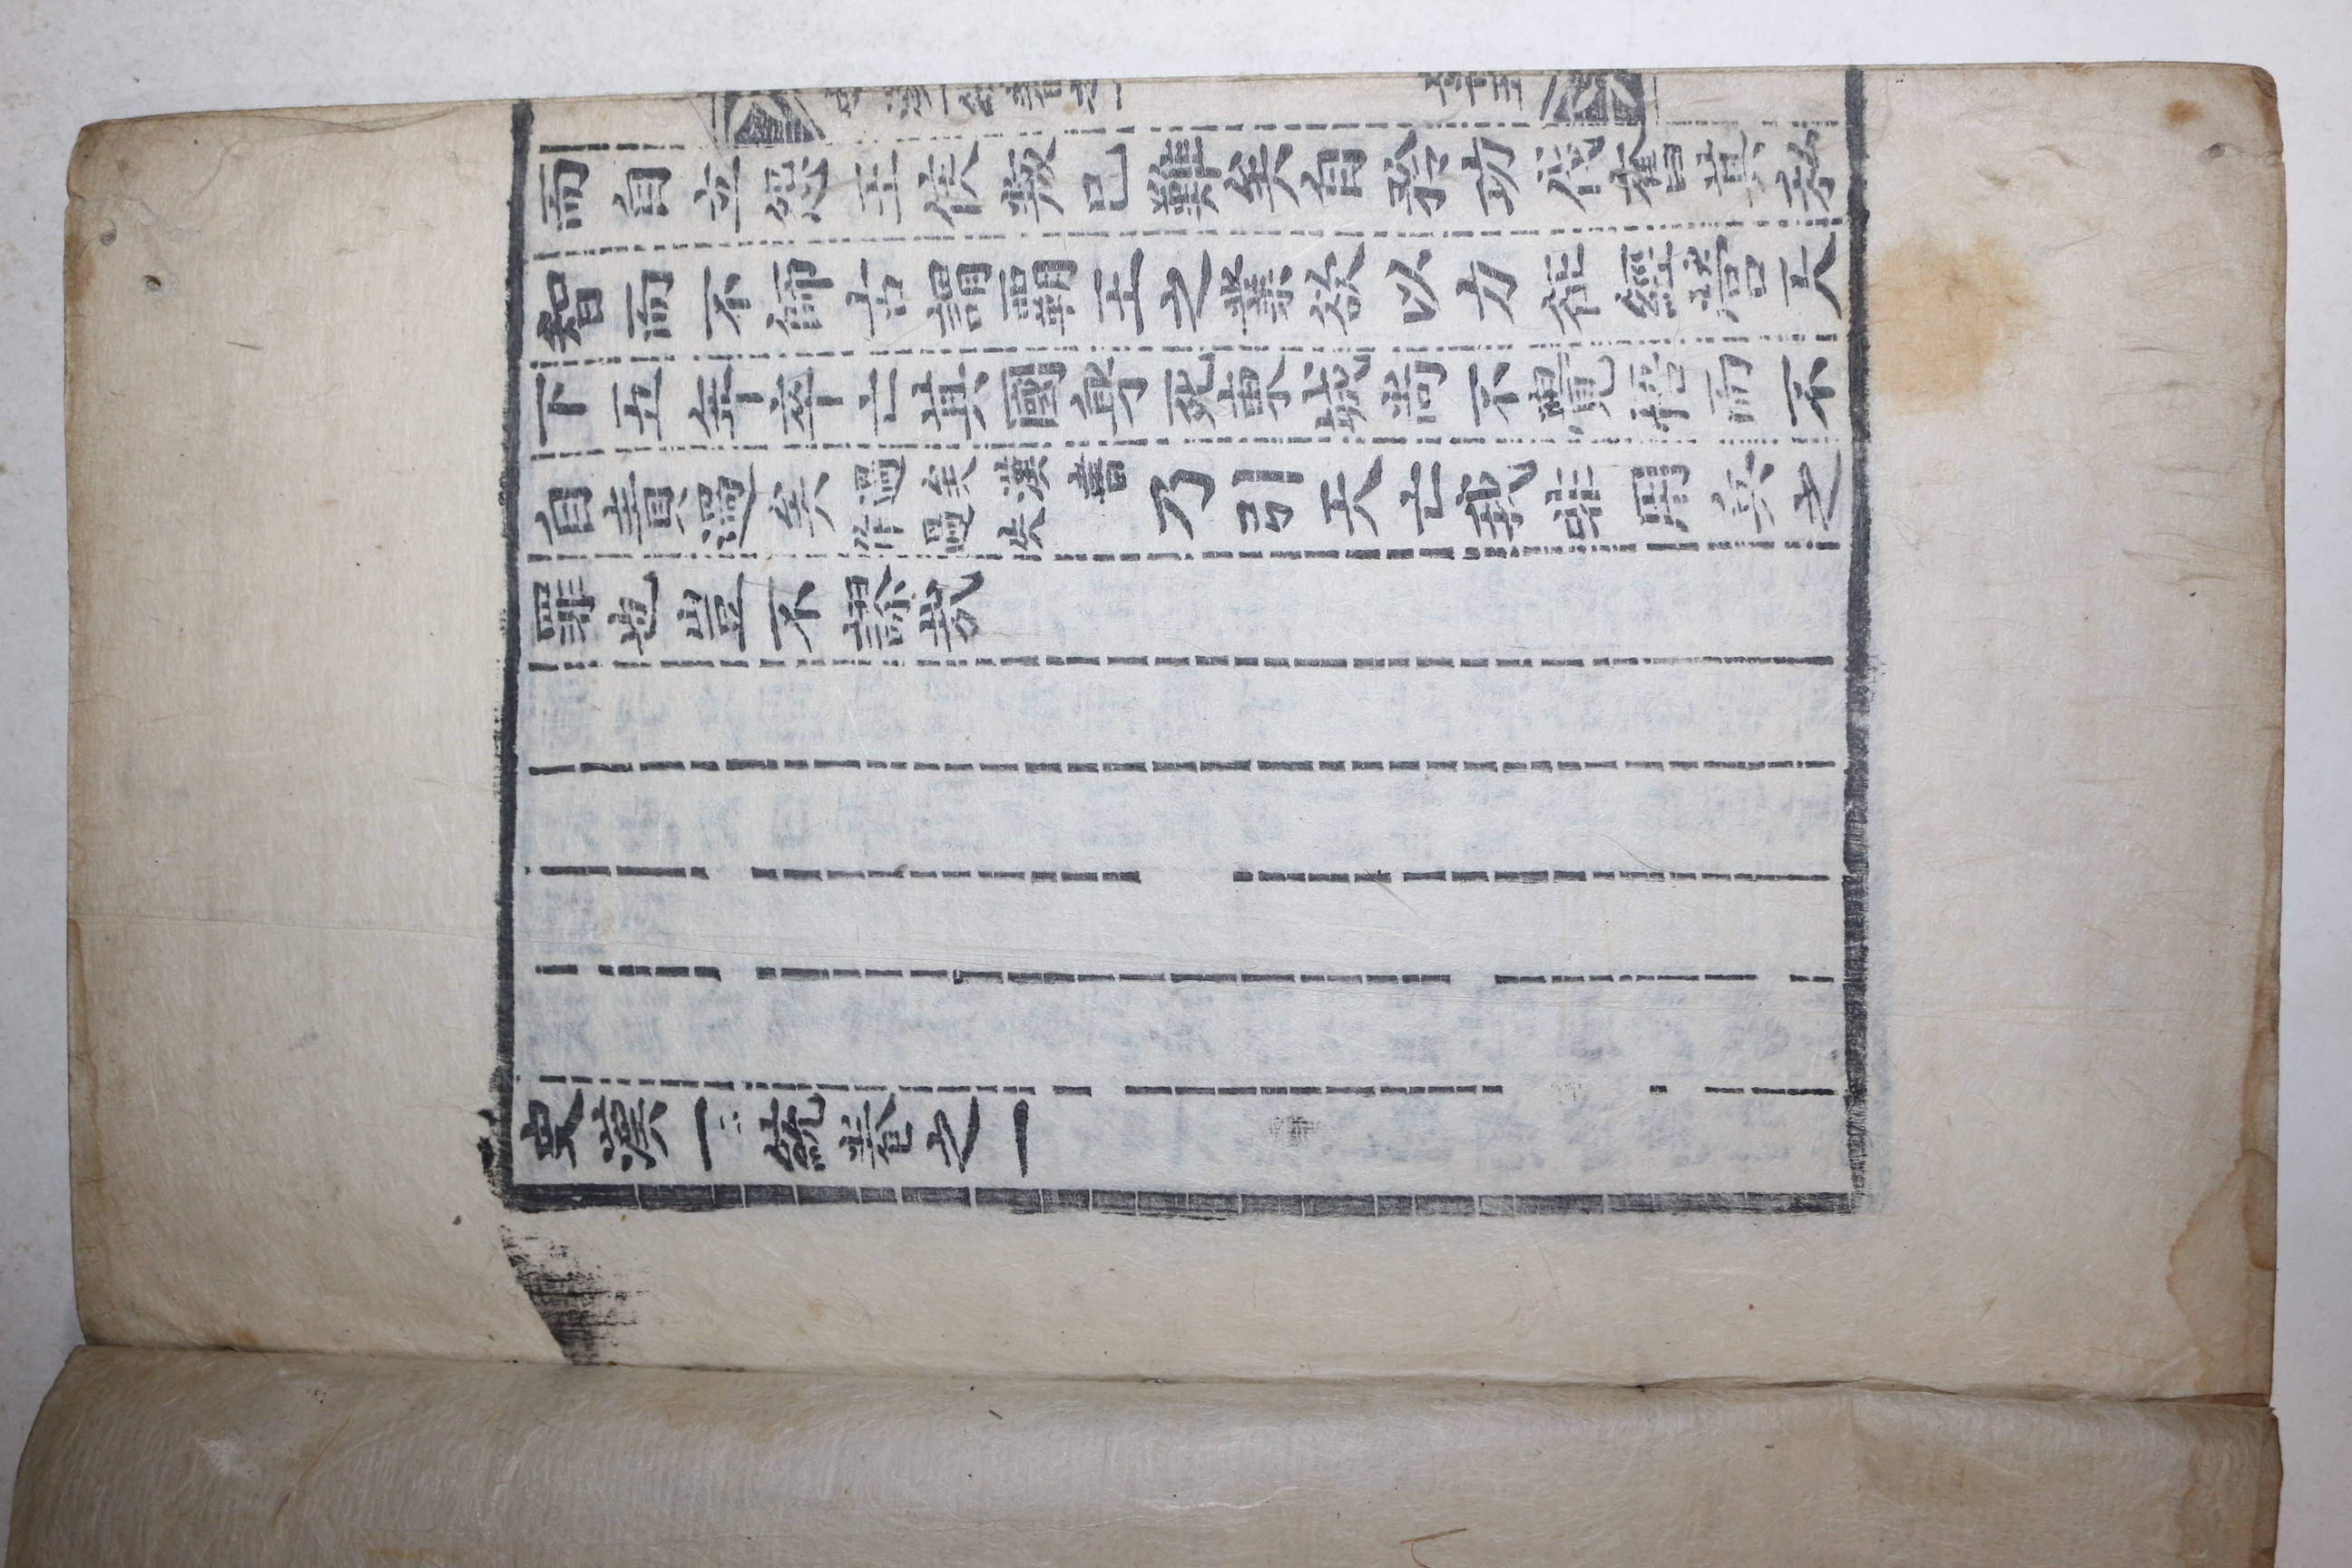 而自立怨王侯叛已難矣自矜功伐奮其私
智而不師古謂覇王之業欲以力征經營天
下五年卒亡其國身死東城尚不覺悟而不
自責過矣過矣漢書作過失乃引天亡我非用兵之
罪也豈不謬哉
史漢一統卷之一